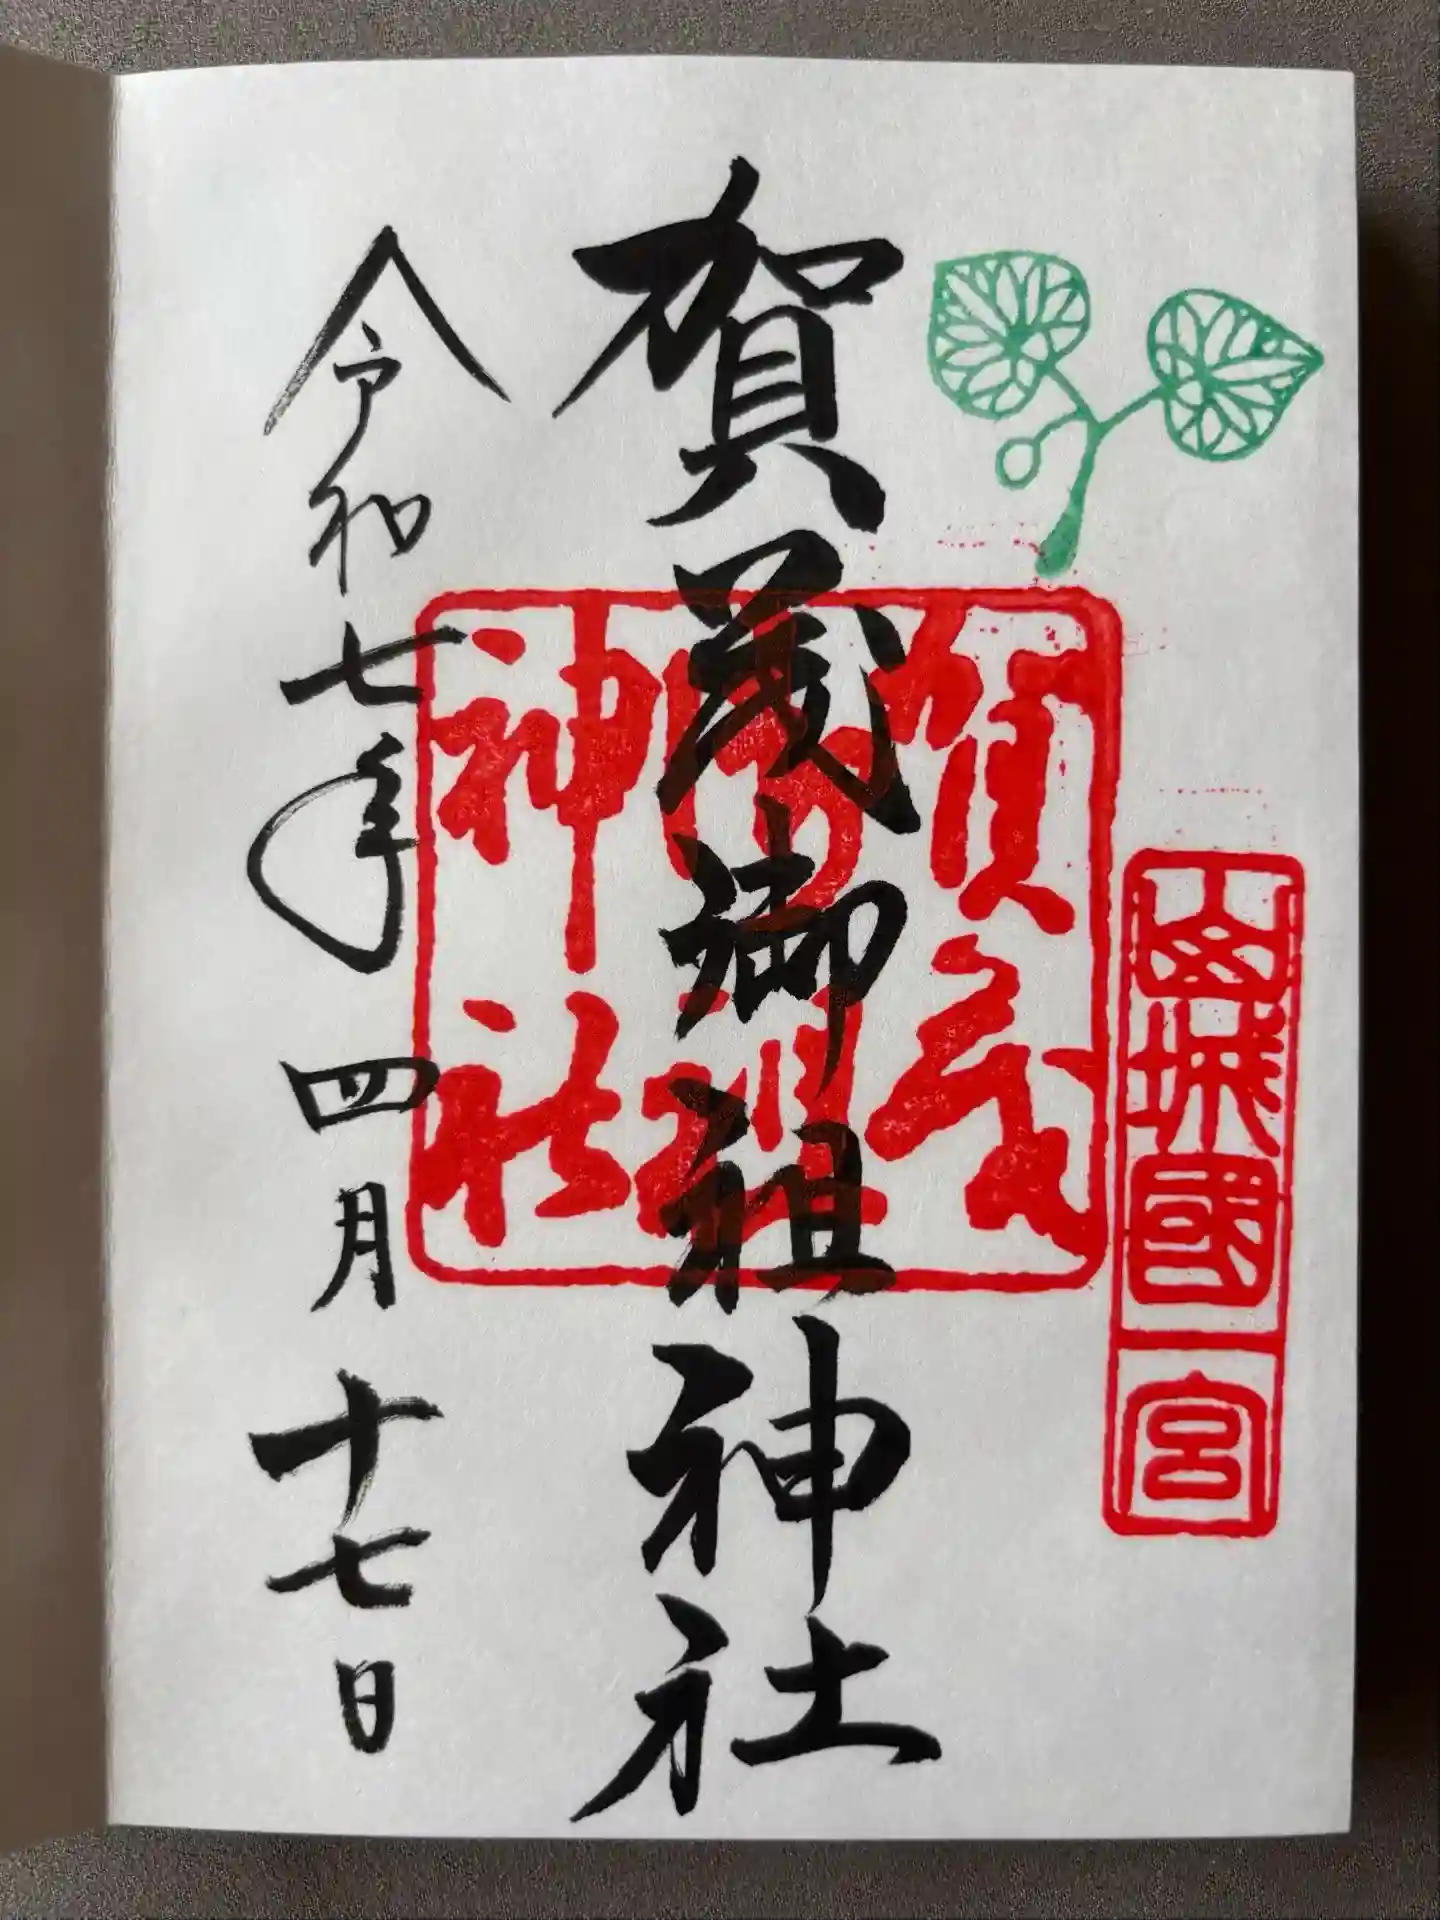 山城國一宮
賀茂御祖神社
賀茂
御祖
神社
令和七年四月十七日